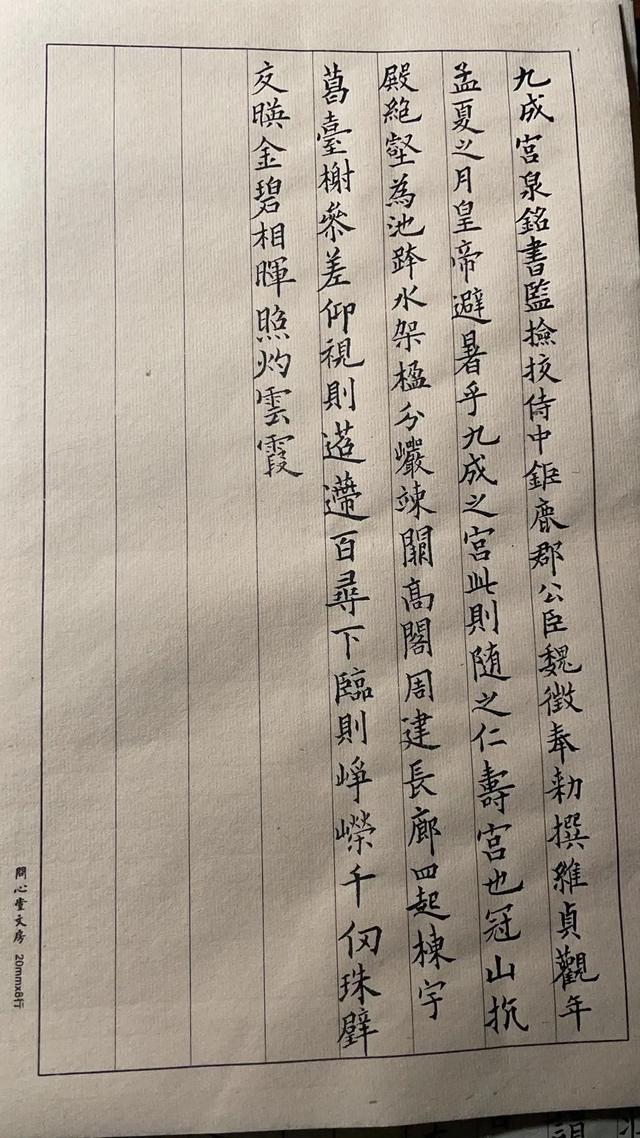 九成宮泉銘書監撿挍侍中鉅鹿郡公臣魏徵奉勅撰維貞觀年
孟夏之月皇帝避暑乎九成之宮此則随之仁壽宮也冠山抗
殿絶壑為池跨水架楹分巖竦闕高閣周建長廊四起棟宇
葛臺榭叅差仰視則迢遰百尋下臨則崢嶸千仞珠璧
交暎金碧相暉照灼雲霞
問心堂文房 20mmx8行